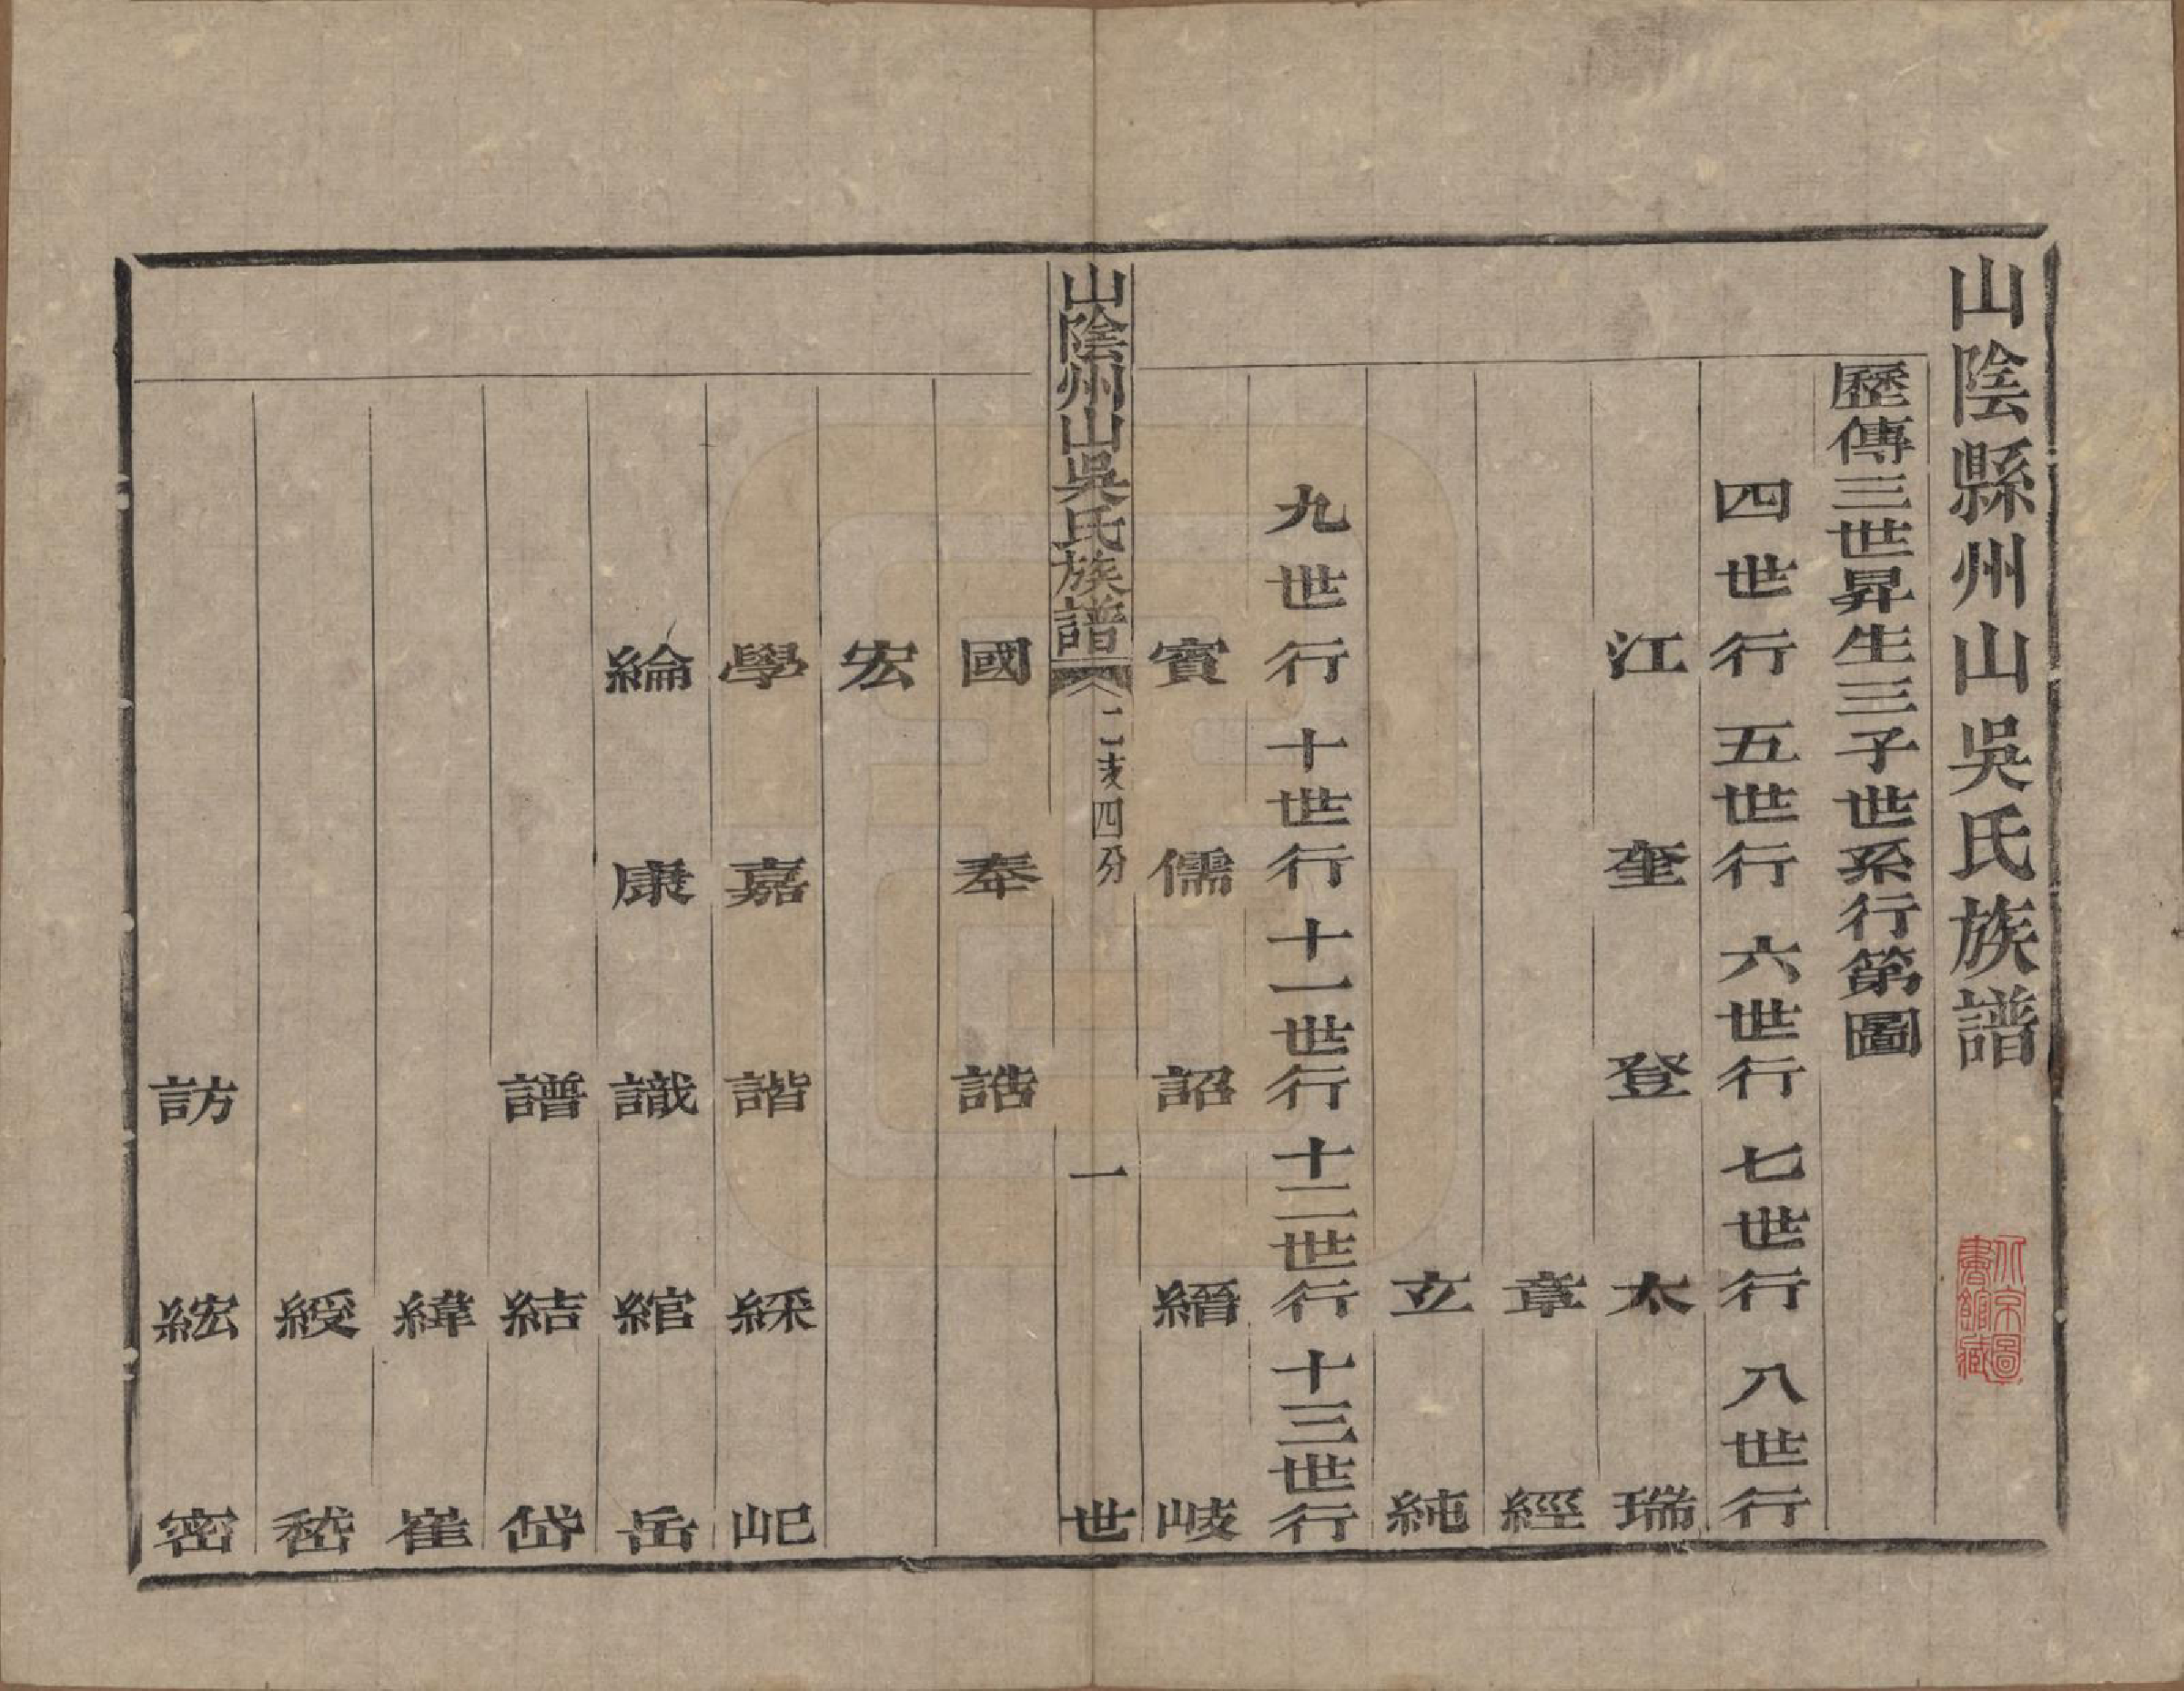 山陰縣州山吳氏族譜
歷傳三世昇生三子世系行第圖
四世行 五世行 六世行 七世行 八世行
江 奎 登 太 瑞
章 經
立 純
九世行 十世行 十一世行 十二世行 十三世行
賓 儒 詔 縉 岐
山陰州山吳氏族譜 二支四分 一 世
國 奉 誥
宏
學 嘉 諧 綵 岊
綸 康 識 綰 岳
譜 結 岱
緯 崔
綬 嵆
訪 紘 密